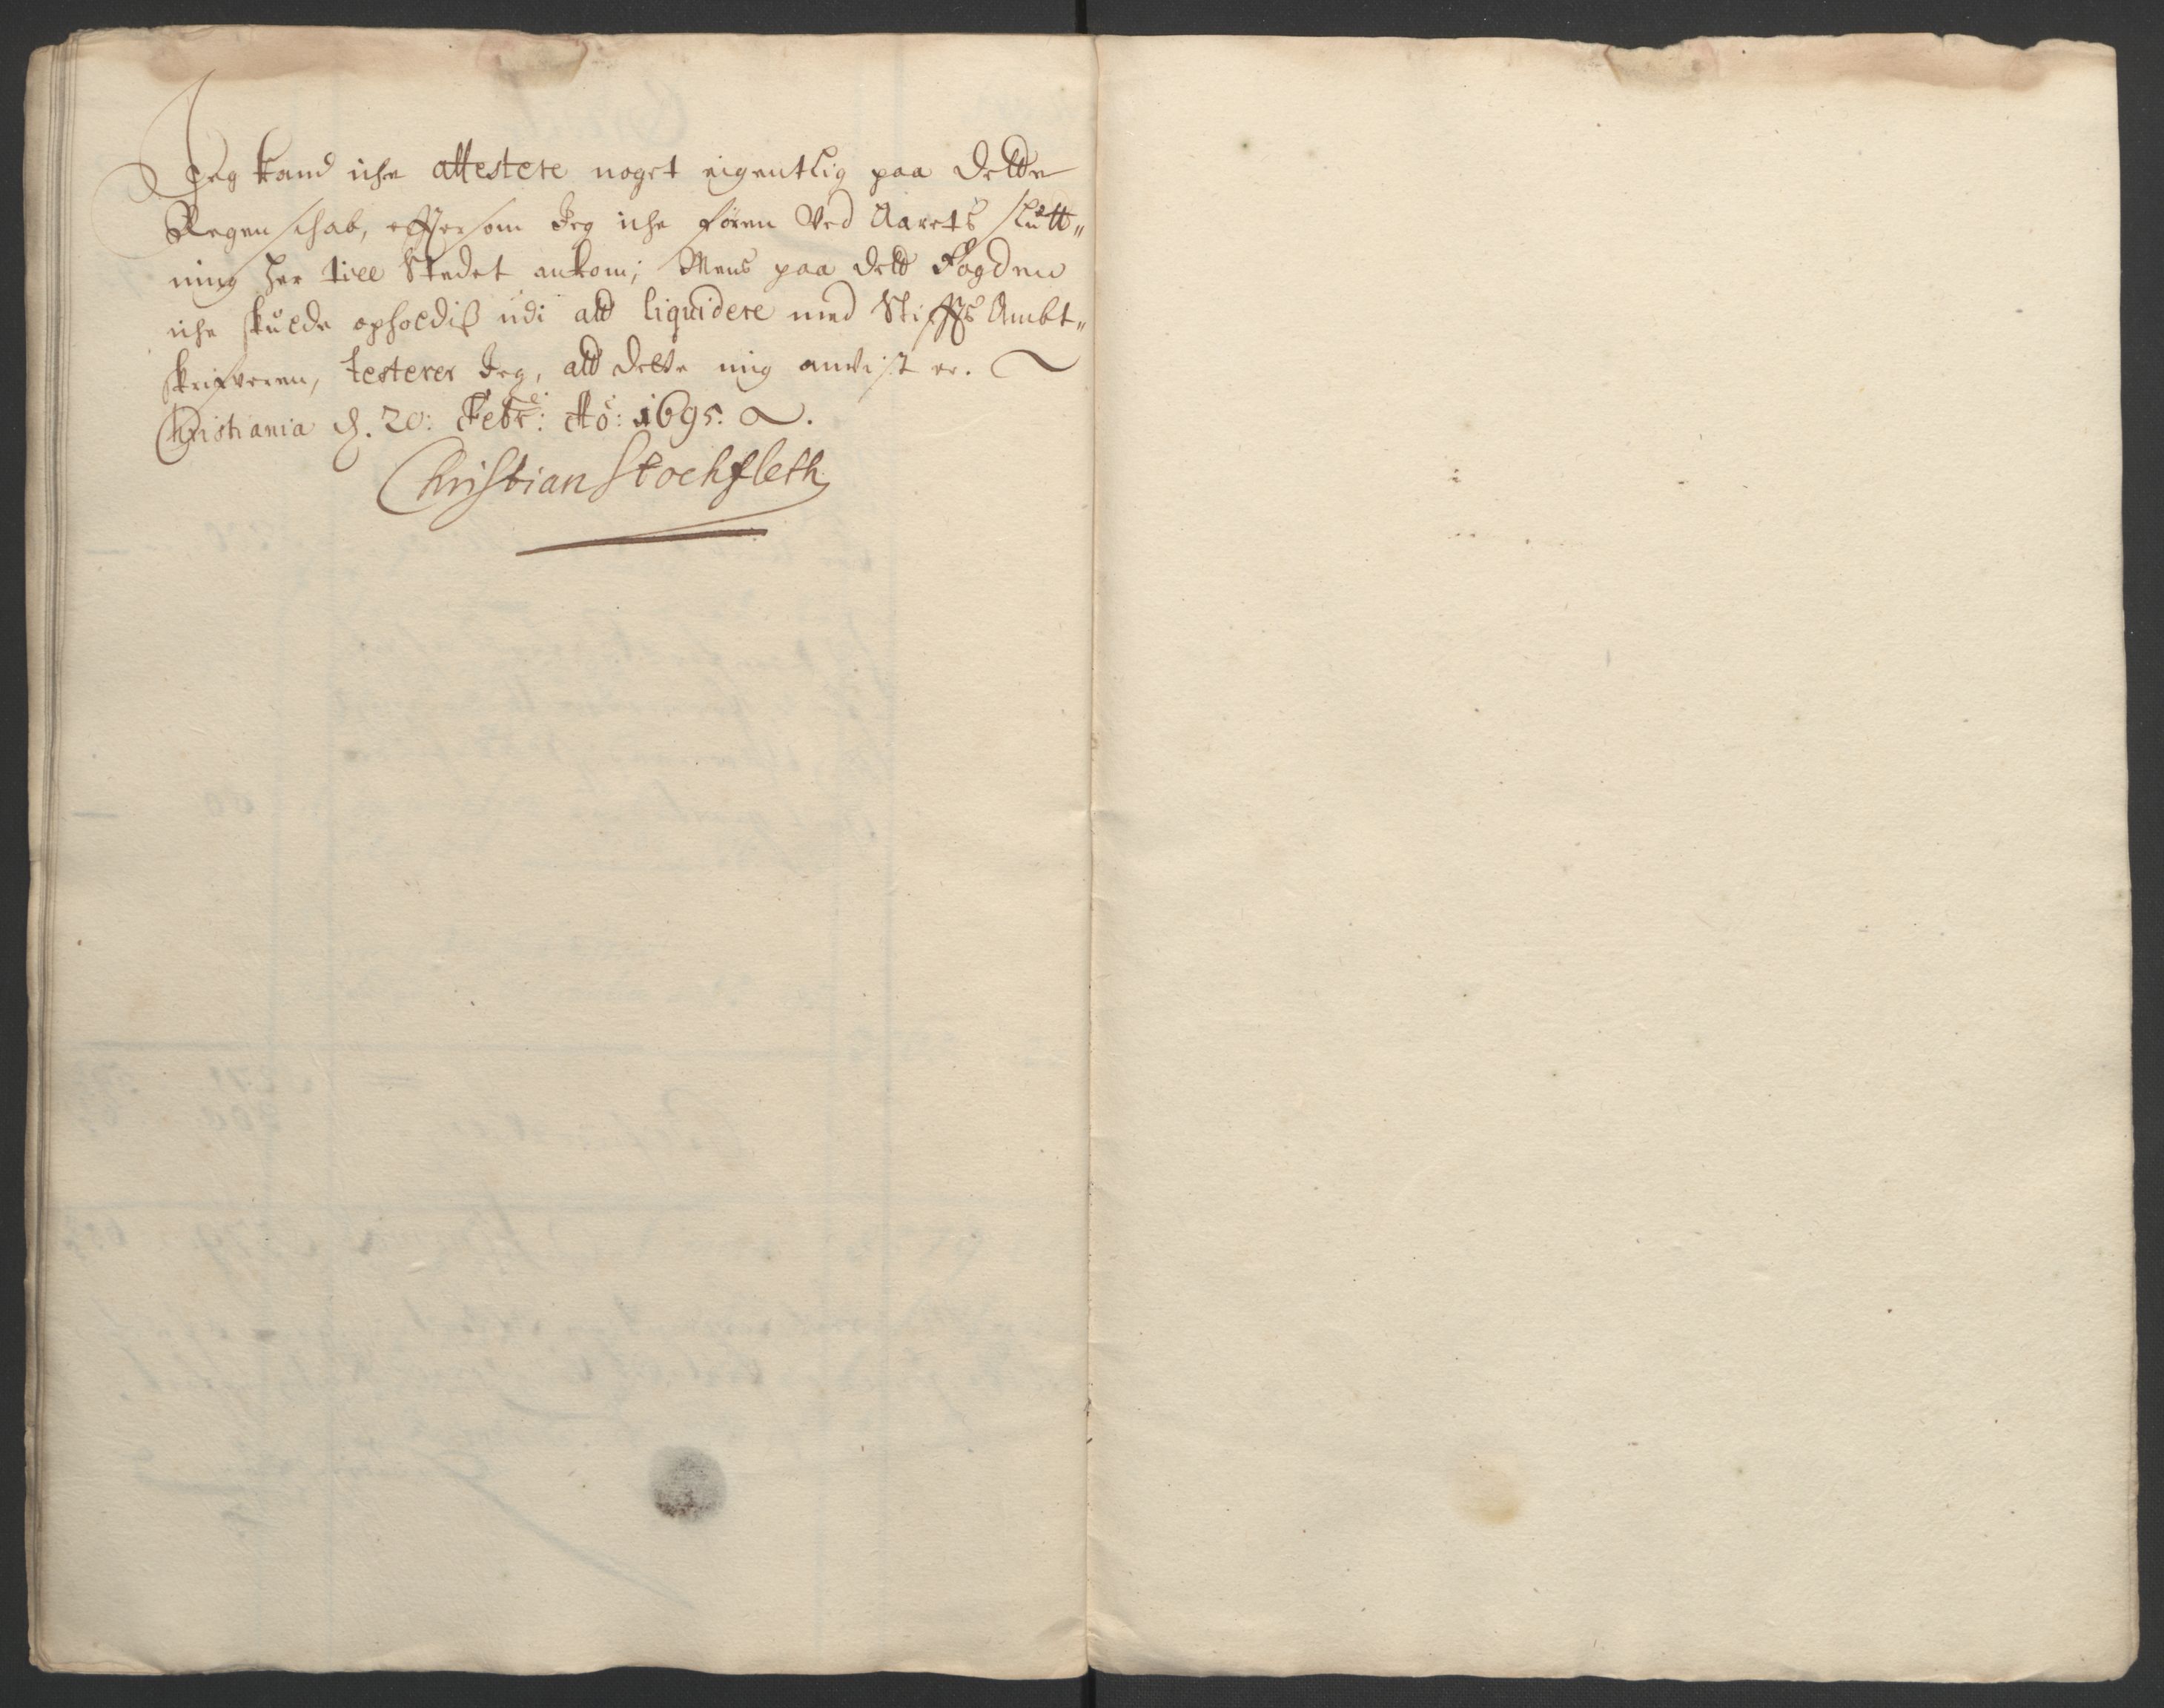 Jeg kand iche attestere noget eigentlig paa dette
Regenschab, effter som Jeg iche føren ved Aarets slutt„
ning her till Stedet ankom; Mens paa dett Fogden
iche skulde opholdis udi att liquidere med Stiffts Ambt„
skrifveren, testerer Jeg, att dette mig anvist er.
Christiania d. 20: Febr: Ao: 1695.
Christian Stochfleth